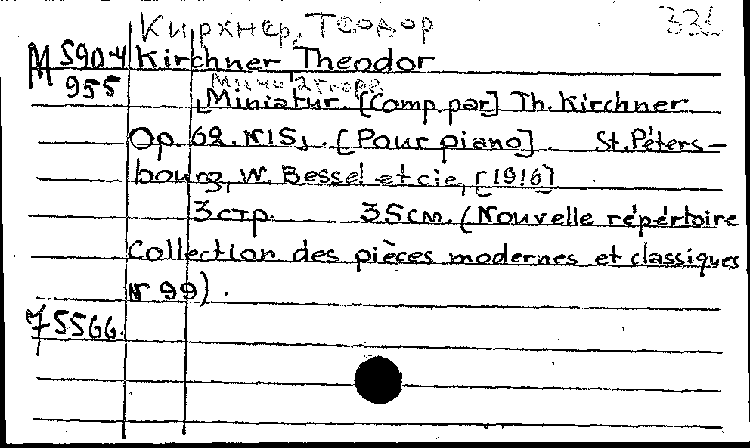 Кирхнер, Теодор 331
М 590-4 Kirchner Theodor
955
Миниатюра
Miniatur. [Comp. par] Th. Kirchner
Op. 62. N15, [Pour piano]. St. Péters-
bourg, W. Bessel et cie, [1916]
3 стр. 35 см. (Nouvelle répértoire
Collection des pièces modernes et classiques
N 99).
75566.